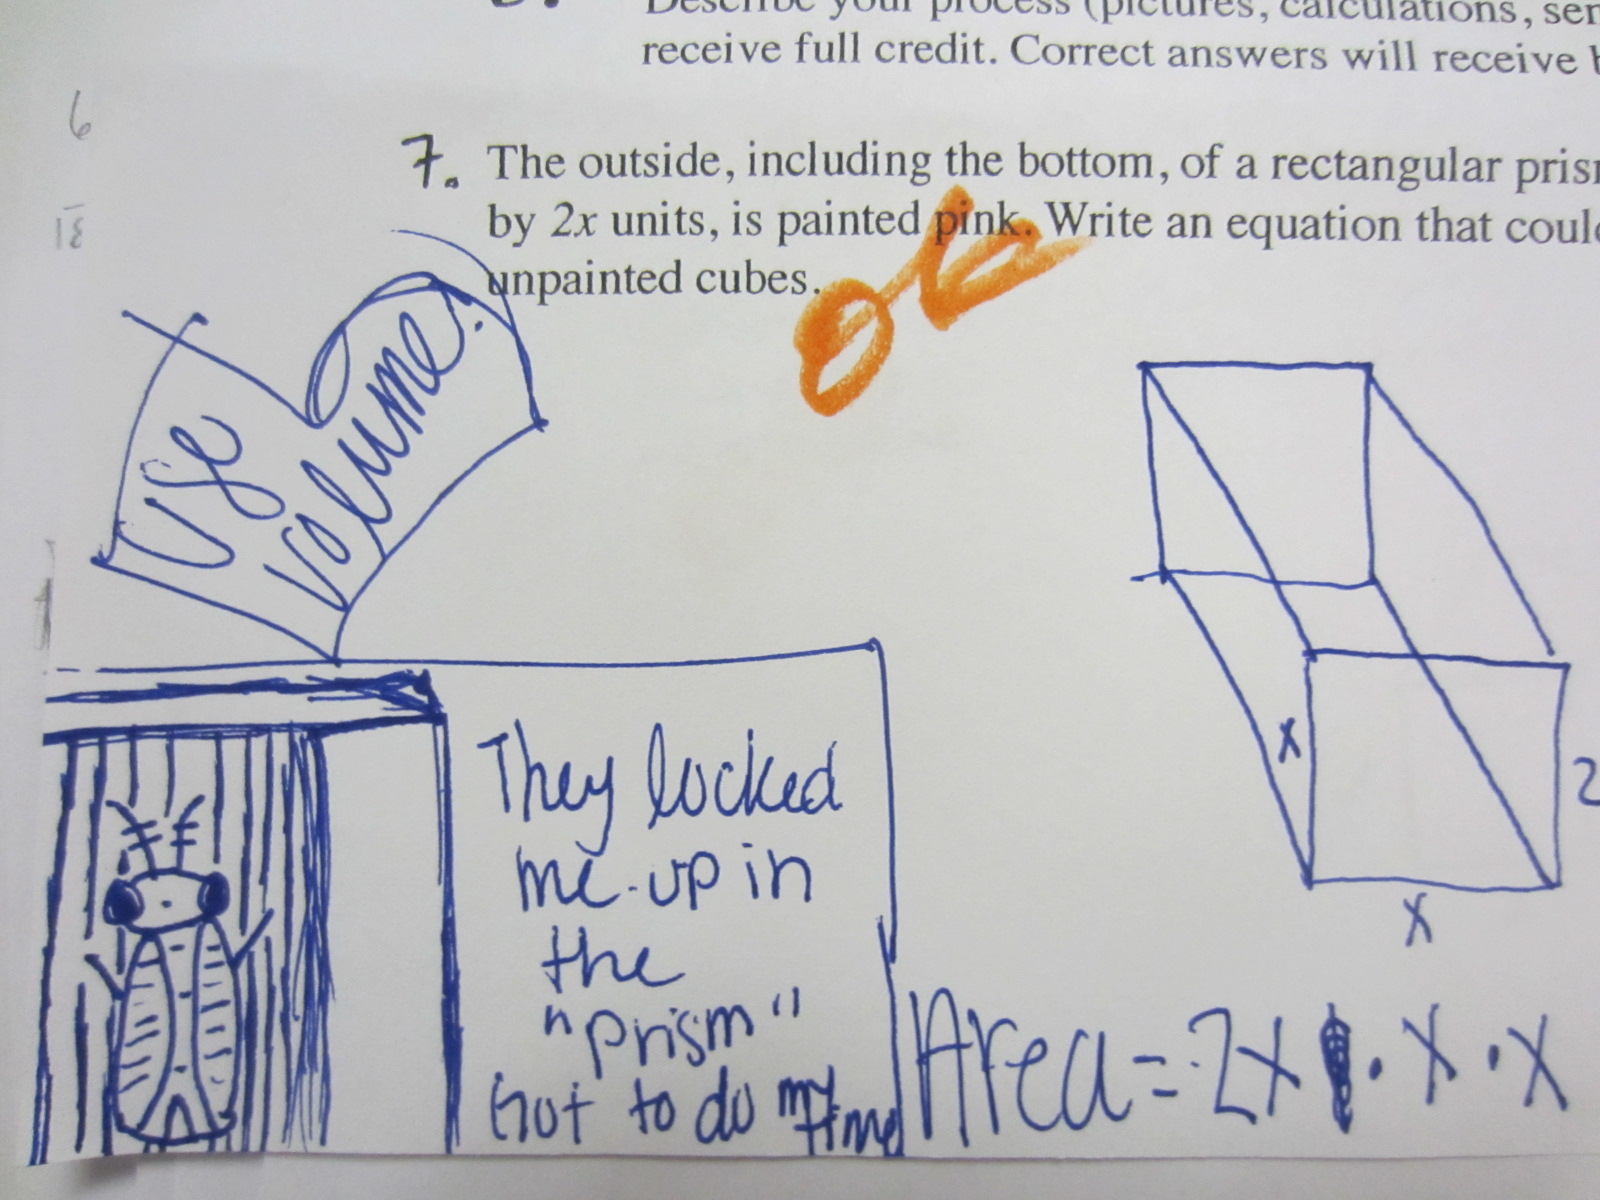 receive full credit. Correct answers will receive
6
7. The outside, including the bottom, of a rectangular
by 2x units, is painted pink. Write an equation that
unpainted cubes.
18
OK
Use
Volume!
They locked
me up in
the
"prism"
Got to do my
time
x
2
x
Area = 2x · x · x